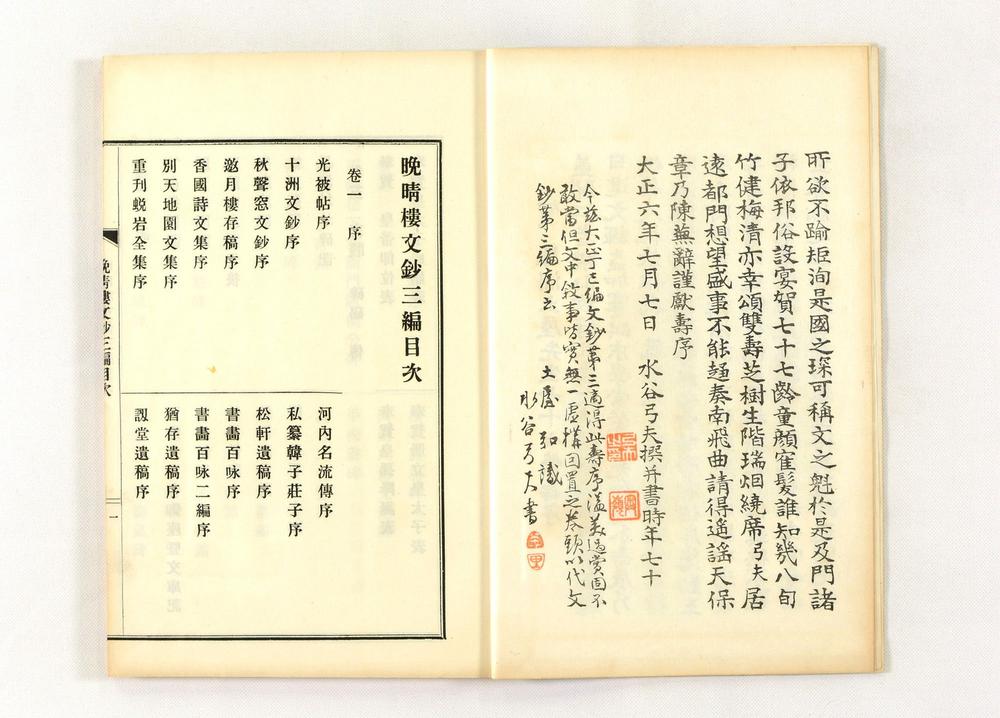 所欲不踰矩洵是國之琛可稱文之魁於是及門諸
子依邦俗設宴賀七十七齡童顏隺髮誰知幾八旬
竹健梅清亦幸頌雙壽芝樹生階瑞烟繞席弓夫居
遠都門想望盛事不能趨奏南飛曲請得遙謡天保
章乃陳蕪辭謹獻壽序
大正六年七月七日 水谷弓夫撰并書時年七十
今玆大正丁巳編文鈔第三適得此壽序溢美過賞固不
敢當但文中敘事皆實無一虛構因置之卷頭以代文
鈔第三編序云 土屋弘識
水谷弓夫書
晩晴樓文鈔三編目次
卷一 序
光被帖序
河內名流傳序
十洲文鈔序
私纂韓子莊子序
秋聲窓文鈔序
松軒遺稿序
邀月樓存稿序
書畵百咏序
香國詩文集序
書畵百咏二編序
別天地園文集序
猶存遺稿序
重刊蛻岩全集序
訒堂遺稿序
晩晴樓文鈔三編目次
一